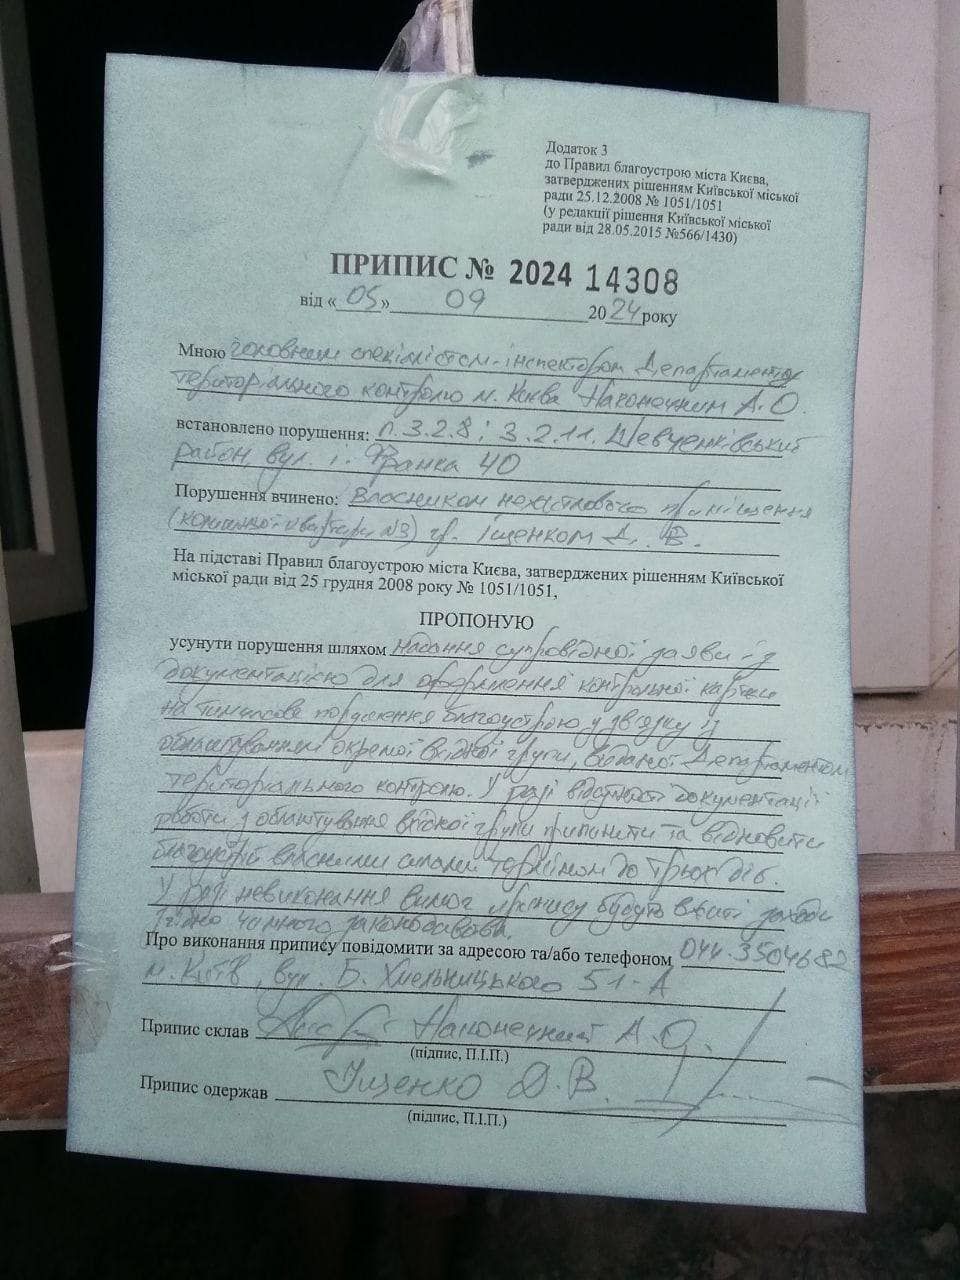 Додаток 3
до Правил благоустрою міста Києва,
затверджених рішенням Київської міської
ради 25.12.2008 № 1051/1051
(у редакції рішення Київської міської
ради від 28.05.2015 №566/1430)
ПРИПИС № 2024 14308
від «05» 09 2024 року
Мною головним спеціалістом-інспектором Департаменту
територіального контролю м. Києва Наконечним А.О.
встановлено порушення: п. 3.2.8; 3.2.11. Шевченківський
район, вул. І. Франка 40
Порушення вчинено: Власником нежитлового приміщення
(колишньої квартири №3) гр. Іщенком Д. В.
На підставі Правил благоустрою міста Києва, затверджених рішенням Київської
міської ради від 25 грудня 2008 року № 1051/1051,
ПРОПОНУЮ
усунути порушення шляхом надання супровідної заяви із
документацією для оформлення контрольної картки
на тимчасове порушення благоустрою у зв'язку із
облаштуванням окремої вхідної групи, виданої Департаментом
територіального контролю. У разі відсутності документації
роботи з облаштування вхідної групи припинити та відновити
благоустрій власними силами терміном до трьох діб.
У разі невиконання вимог припису будуть вжиті заходи
згідно чинного законодавства.
Про виконання припису повідомити за адресою та/або телефоном 044-3504682
м. Київ, вул. Б. Хмельницького 51-А
Припис склав Наконечний А. О.
(підпис, П.І.П.)
Припис одержав Іщенко Д. В.
(підпис, П.І.П.)